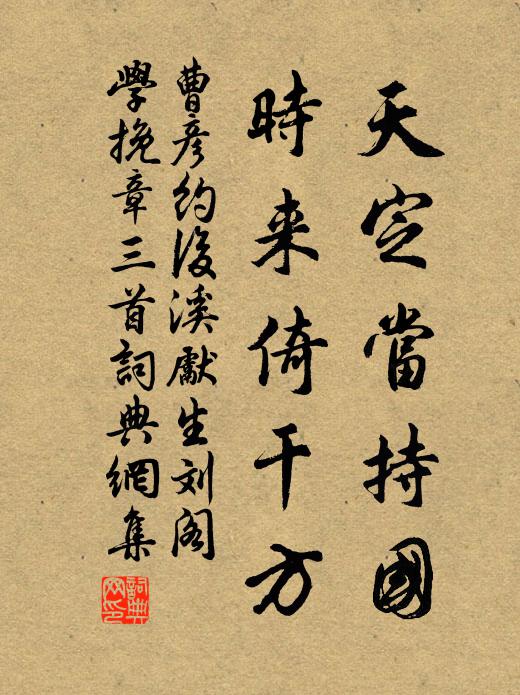 天定當持國
時来倚干方
曹彦約後溪獻生刘阁
學挽章三首詞典網集
詞典网印